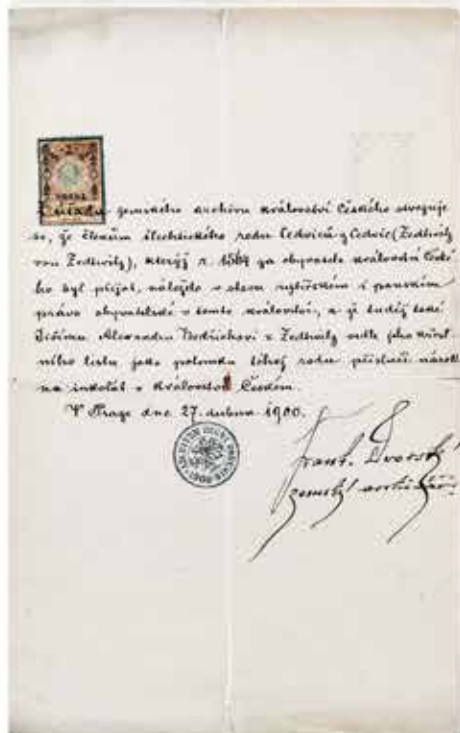 Z úřadu zemského archivu království Českého stvrzuje
se, že členům šlechtického rodu Cedviců z Cedvic (Zedtwitz
von Zedtwitz), kterýž r. 1569 za obyvatele království České
ho byl přijat, náleželo v stavu rytířském i panském
právo obyvatelské v tomto království, a že tudíž také
Jiřímu Alexandru Bedřichovi z Zedtwitz vedle jeho křest
ního listu jako potomku téhož rodu přísluší nárok
na inkolát v království Českém.
V Praze dne 27. dubna 1900.
Frant. Dvorský
zemský archivář